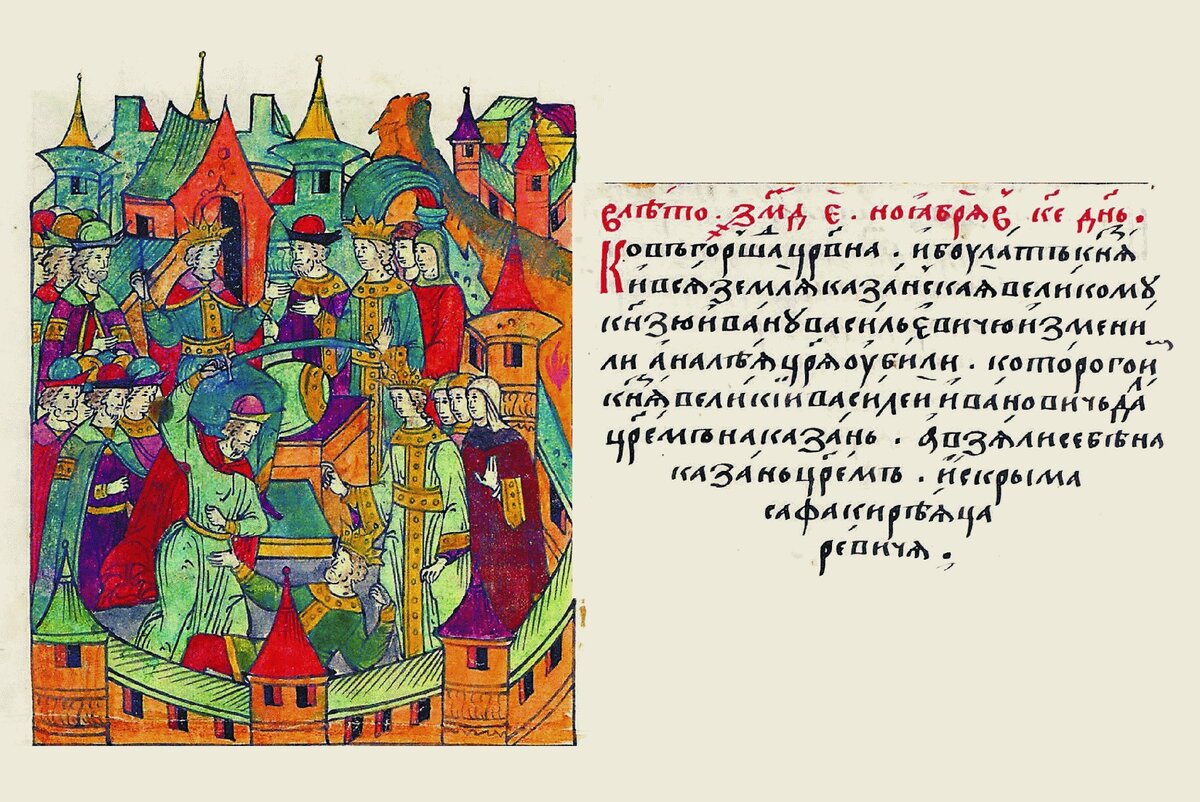 Влѣто . зм҃д е҃ . ноꙗбрѧ в҃ к҃е дн҃ь .
Ковъгоршадцр҃вна . ибоулатъкнѧз
ивсѧземлѧказанскаѧвеликому
кн҃зюивануваси́льєвичюизмени
ли аналѣѧцр҃ѧоубили . которогои
кнѧвеликїивасилеиивановичьдал
цр҃емънаказань . авзѧлисебѣна
казаньцр҃емъ . искрыма
сафакирѣѧца
ревичѧ .